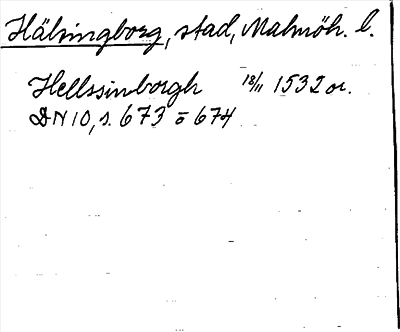 Hälsingborg, stad, Malmöh. l.
Hellssinborgh 18/11 1532 or.
DN 10, s. 673 o 674